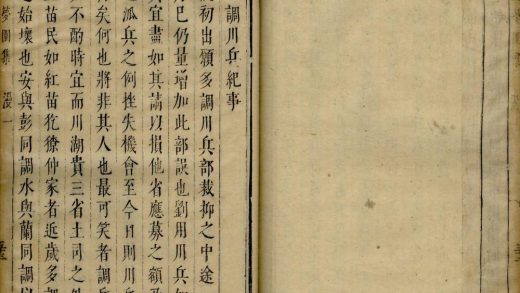 調川兵紀事
初出頟多調川兵部裁抑之中途
已仍量增加此部誤也劉用川兵如
宜盡如其請以損他省應募之額乃
兵之何挫失機會至今日則川兵
矣何也將非其人也最可笑者調兵
不酌時宜而川湖貴三省土司之外
苗民如紅苗犵獠仲家者近歲多調
始壞也安與彭同調水與藺同調以
集